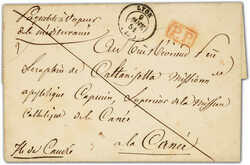 Paquebot à vapeur
de la méditerranée
LYON
9
51
P.P.
Au Très Révérend Père
Séraphin de Caltanisetta Missionn
apostolique Capucin, Supérieur de la Mission
Catholique de la Canée
Ile de Candie
à la Canée